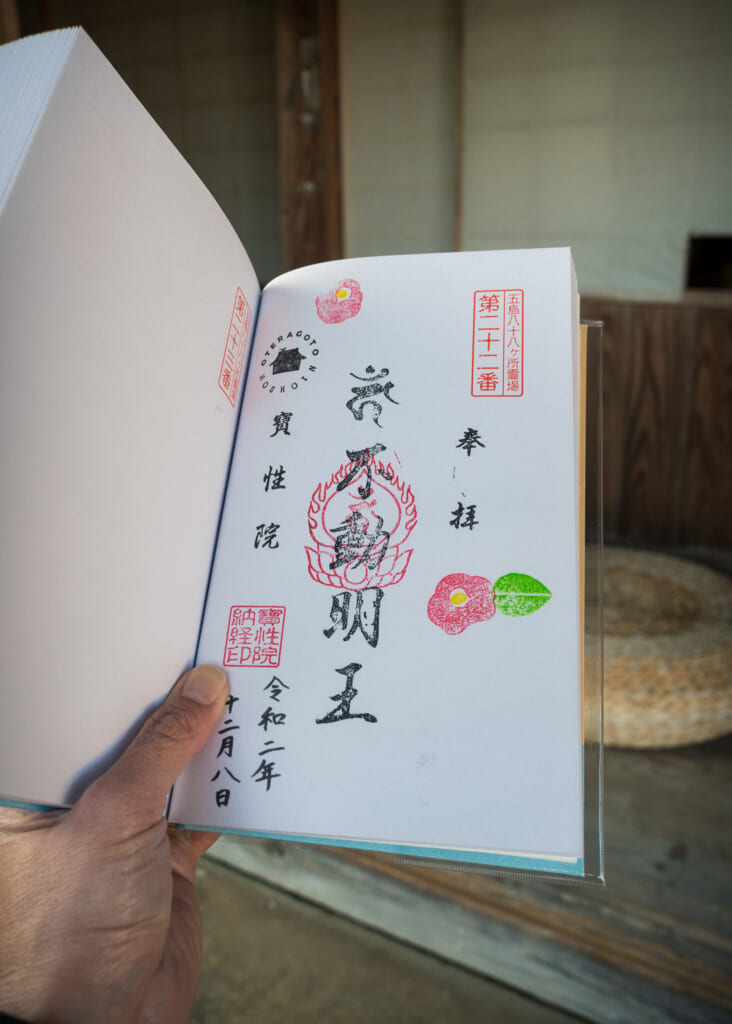 五島八十八ヶ所霊場
第二十二番
奉拝
不動明王
OTERAGOTO
HOSHOIN
寶性院
寶性院
納経印
令和二年
十二月八日
第二十三番